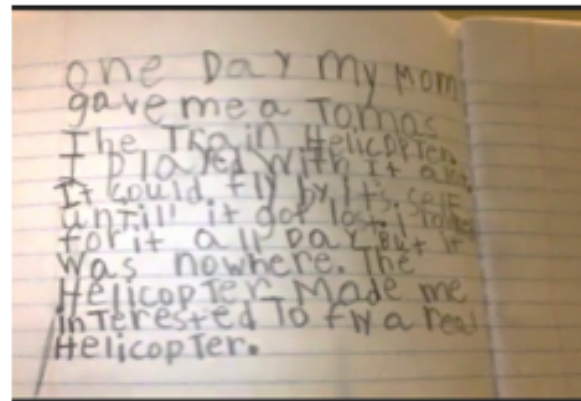 one Day My Mom
gave me a Tomas
The Train Helicopter
I played with it alot
It could fly by it's self
untill it got lost. I
for it all Day But it
was nowhere. The
Helicopter Made me
interested To fly a real
Helicopter.